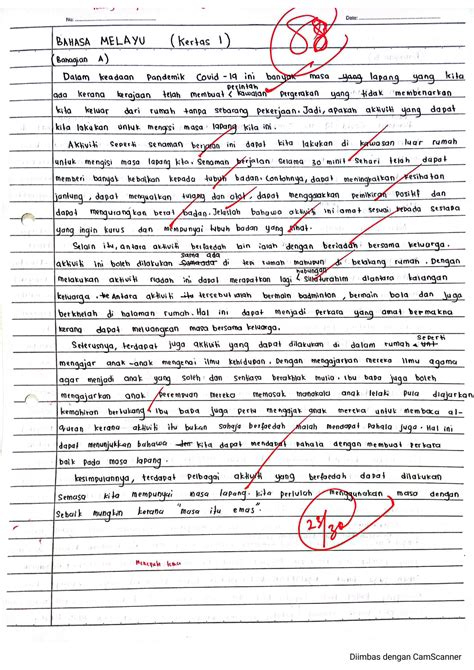 No.: Date:
88
BAHASA MELAYU (Kertas 1)
(Bahagian A)
Dalam keadaan Pandemik Covid-19 ini banyak masa yang lapang yang kita
perintah
ada kerana kerajaan telah membuat kawalan Pergerakan yang tidak membenarkan
kita keluar dari rumah tanpa sebarang pekerjaan. Jadi, apakah aktiviti yang dapat
kita lakukan untuk mengisi masa lapang kita ini.
Aktiviti seperti senaman berjalan ini dapat kita lakukan di kawasan luar rumah
untuk mengisi masa lapang kita. Senaman berjalan selama 30 minit sehari telah dapat
memberi banyak kebaikan kepada tubuh badan. Contohnya, dapat meningkatkan kesihatan
jantung, dapat menguatkan tulang dan otot, dapat menggalakkan pemikiran Positif dan
dapat mengurangkan berat badan. Jelaslah bahawa aktiviti ini amat sesuai kepada sesiapa
yang ingin kurus dan mempunyai tubuh badan yang sihat.
Selain itu, antara aktiviti berfaedah lain ialah dengan beriadah bersama keluarga.
sama ada
aktiviti ini boleh dilakukan di rumah mahupun di belakang rumah. Dengan
hubungan
melakukan aktiviti riadah ini dapat merapatkan lagi Silaturahim diantara kalangan
keluarga. Antara aktiviti tersebut ialah bermain badminton, bermain bola dan juga
berkhelah di halaman rumah. Hal ini dapat menjadi Perkara yang amat bermakna
kerana dapat meluangkan masa bersama keluarga.
seperti
Seterusnya, terdapat juga aktiviti yang dapat dilakukan di dalam rumah
mengajar anak-anak mengenai ilmu kehidupan. Dengan mengajarkan mereka ilmu agama
agar menjadi anak yang soleh dan sentiasa berakhlak mulia. Ibu bapa juga boleh
mengajarkan anak perempuan mereka memasak manakala anak lelaki pula diajarkan
kemahiran bertukang. Ibu bapa juga perlu mengajak anak mereka untuk membaca al-
Quran kerana aktiviti itu bukan sahaja berfaedah malah mendapat Pahala juga. Hal ini
dapat menunjukkan bahawa kita dapat mendapat pahala dengan membuat perkara
baik pada masa lapang.
Kesimpulannya, terdapat pelbagai aktiviti yang berfaedah dapat dilakukan
Semasa kita mempunyai masa lapang. Kita perlulah menggunakan masa dengan
Sebaik mungkin kerana "masa itu emas".
25/30
Diimbas dengan CamScanner